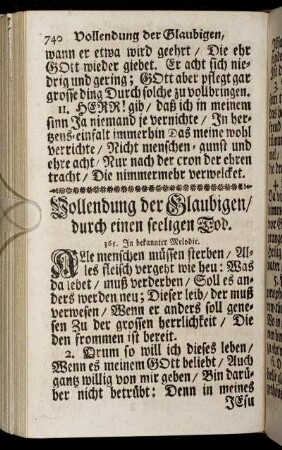 740 Vollendung der Glaubigen,
wann er etwa wird geehrt / Die ehr
GOtt wieder giebet. Er acht sich nie-
drig und gering; GOtt aber pflegt gar
grosse ding Durch solche zu vollbringen.
11. HERR! gib / daß ich in meinem
sinn Ja niemand je vernichte / In her-
tzens-einfalt immerhin Das meine wohl
verrichte / Nicht menschen-gunst und
ehre acht / Nur nach der cron der ehren
tracht / Die nimmermehr verwelcket.
Vollendung der Glaubigen /
durch einen seeligen Tod.
365. In bekannter Melodie.
Alle menschen müssen sterben / Al-
les fleisch vergeht wie heu: Was
da lebet / muß verderben / Soll es an-
ders werden neu; Dieser leib / der muß
verwesen / Wenn er anders soll gene-
sen Zu der grossen herrlichkeit / Die
den frommen ist bereit.
2. Drum so will ich dieses leben /
Wenn es meinem GOtt beliebt / Auch
gantz willig von mir geben / Bin darü-
ber nicht betrübt: Denn in meines
JEsu